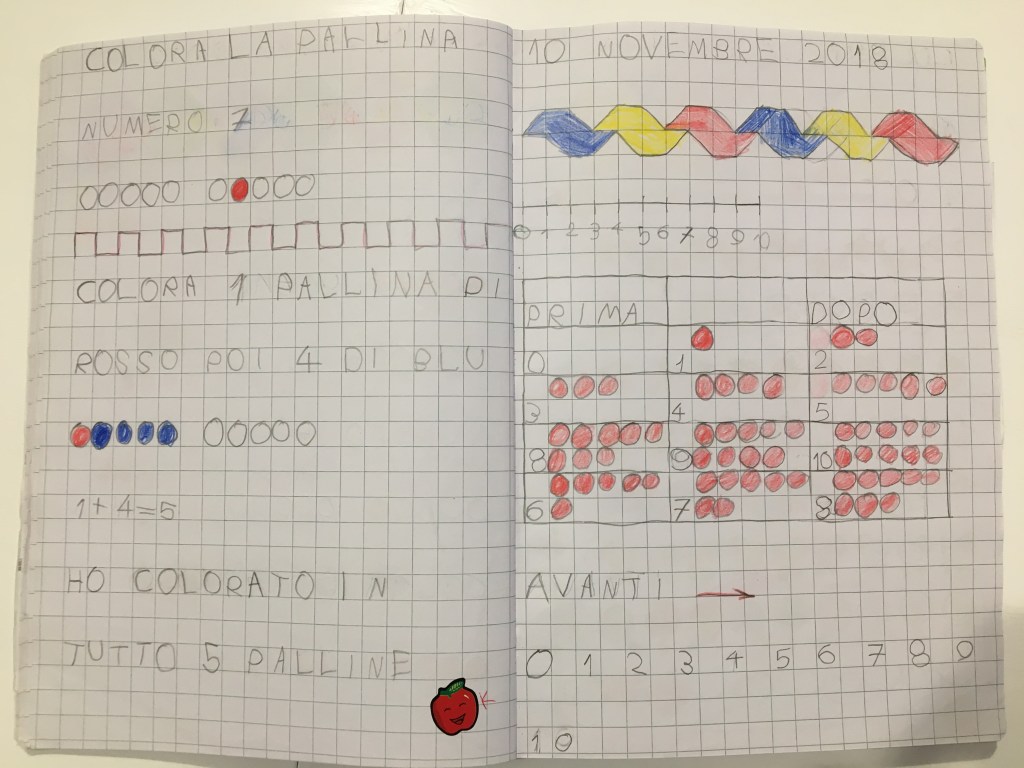 COLORA LA PALLINA
NUMERO 7
COLORA 1 PALLINA DI
ROSSO POI 4 DI BLU
1+4=5
HO COLORATO IN
TUTTO 5 PALLINE
10 NOVEMBRE 2018
0 1 2 3 4 5 6 7 8 9 10
PRIMA DOPO
0 1 2
3 4 5
8 9 10
6 7 8
AVANTI →
0 1 2 3 4 5 6 7 8 9
10